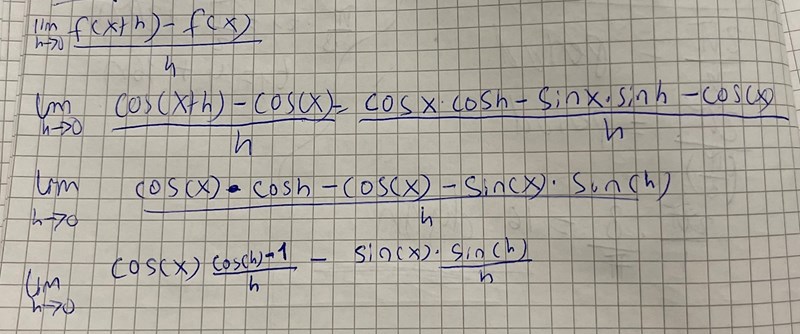 lim h→0 (f(x+h) - f(x))/h
lim h→0 (cos(x+h) - cos(x))/h = (cos x · cosh - sinx · sinh - cos(x))/h
lim h→0 (cos(x) · cosh - cos(x) - sin(x) · sin(h))/h
lim h→0 cos(x) (cos(h)-1)/h - sin(x) · sin(h)/h